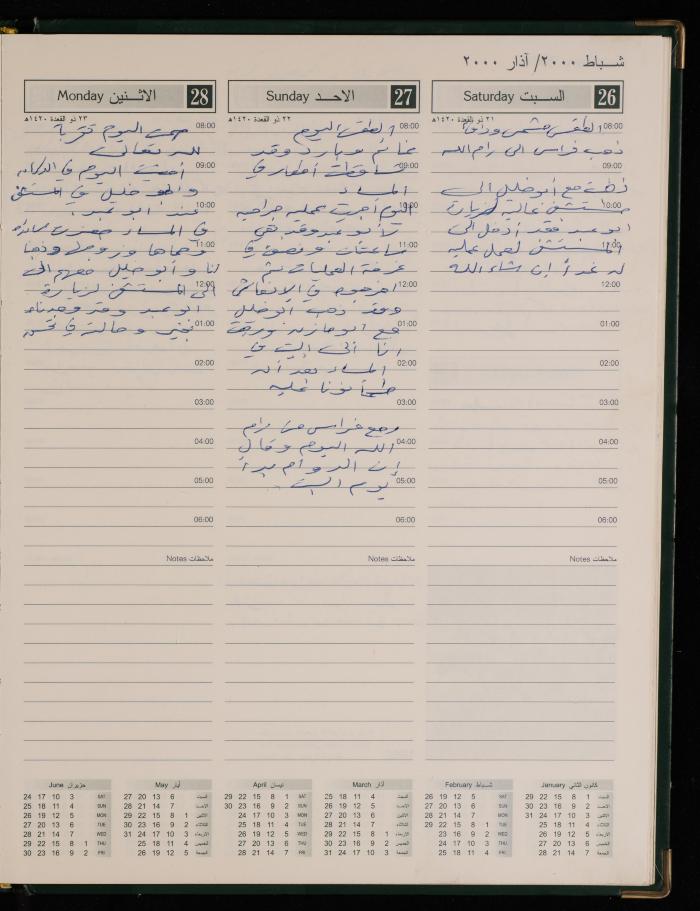 شباط ٢٠٠٠/ آذار ٢٠٠٠
26 السبت Saturday
٢١ ذو القعدة ١٤٢٠هـ
08:00 الطقس مشمس ودافئ
ذهب فراس الى رام الله
09:00
ذهبت مع أبو خليل الى
10:00 مستشفى عاليه لزيارة
ابو عبد فقد أدخل الى
11:00 المستشفى لعمل عمليه
له غداً إن شاء الله
12:00
01:00
02:00
03:00
04:00
05:00
06:00
Notes ملاحظات
27 الاحد Sunday
٢٢ ذو القعدة ١٤٢٠هـ
08:00 الطقس اليوم
غائم وبارد وقد
09:00 تساقطت أمطار في
المساء
10:00 اليوم أجريت عمليه جراحيه
لأبو عبد وقد بقي
11:00 ساعتان ونصف في
غرفة العمليات ثم
12:00 اخرجوه في الإنعاش
وقد ذهب أبو خليل
01:00 مع ابو مازن ورجعت
انا الى البيت في
02:00 المساء بعد أن
طمأنونا عليه
03:00
رجع فراس من رام
04:00 الله اليوم وقال
إن الدوام يبدأ
05:00 يوم السبت
06:00
Notes ملاحظات
28 الاثنين Monday
٢٣ ذو القعدة ١٤٢٠هـ
08:00 صمت اليوم قربة
لله تعالى
09:00 أمضيت اليوم في الدكان
وابو خليل في المستشفى
10:00 عند ابو عبد
في المساء حضرت
11:00 وحماها وزوجها وذهبنا
انا وأبو خليل معهم الى
12:00 الى المستشفى لزيارة
ابو عبد وقد وجدناه
01:00 بخير وحالته في تحسن
02:00
03:00
04:00
05:00
06:00
Notes ملاحظات
كانون الثاني January
السبت 1 8 15 22 29 SAT
الاحد 2 9 16 23 30 SUN
الاثنين 3 10 17 24 31 MON
الثلاثاء 4 11 18 25 TUE
الاربعاء 5 12 19 26 WED
الخميس 6 13 20 27 THU
الجمعة 7 14 21 28 FRI
شباط February
5 12 19 26 SAT
6 13 20 27 SUN
7 14 21 28 MON
1 8 15 22 29 TUE
2 9 16 23 WED
3 10 17 24 THU
4 11 18 25 FRI
آذار March
السبت 4 11 18 25
الاحد 5 12 19 26
الاثنين 6 13 20 27
الثلاثاء 7 14 21 28
الاربعاء 1 8 15 22 29
الخميس 2 9 16 23 30
الجمعة 3 10 17 24 31
نيسان April
1 8 15 22 29 SAT
2 9 16 23 30 SUN
3 10 17 24 MON
4 11 18 25 TUE
5 12 19 26 WED
6 13 20 27 THU
7 14 21 28 FRI
أيار May
السبت 6 13 20 27
الاحد 7 14 21 28
الاثنين 1 8 15 22 29
الثلاثاء 2 9 16 23 30
الاربعاء 3 10 17 24 31
الخميس 4 11 18 25
الجمعة 5 12 19 26
حزيران June
3 10 17 24 SAT
4 11 18 25 SUN
5 12 19 26 MON
6 13 20 27 TUE
7 14 21 28 WED
1 8 15 22 29 THU
2 9 16 23 30 FRI